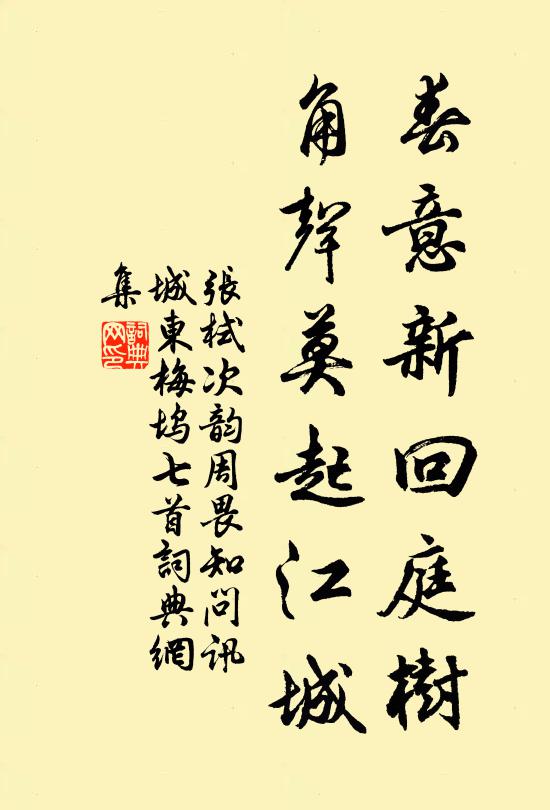 春意新回庭樹
角聲莫起江城
張栻次韵周畏知問訊
城東梅坞七首詞典網
集
詞典
网印